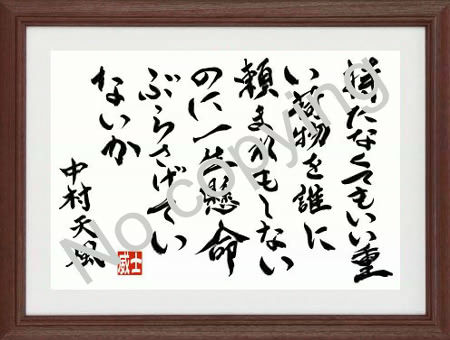 持たなくてもいい重
い荷物を誰に
頼まれもしない
のに一生懸命
ぶらさげてい
ないか
中村天風
威士
No copying